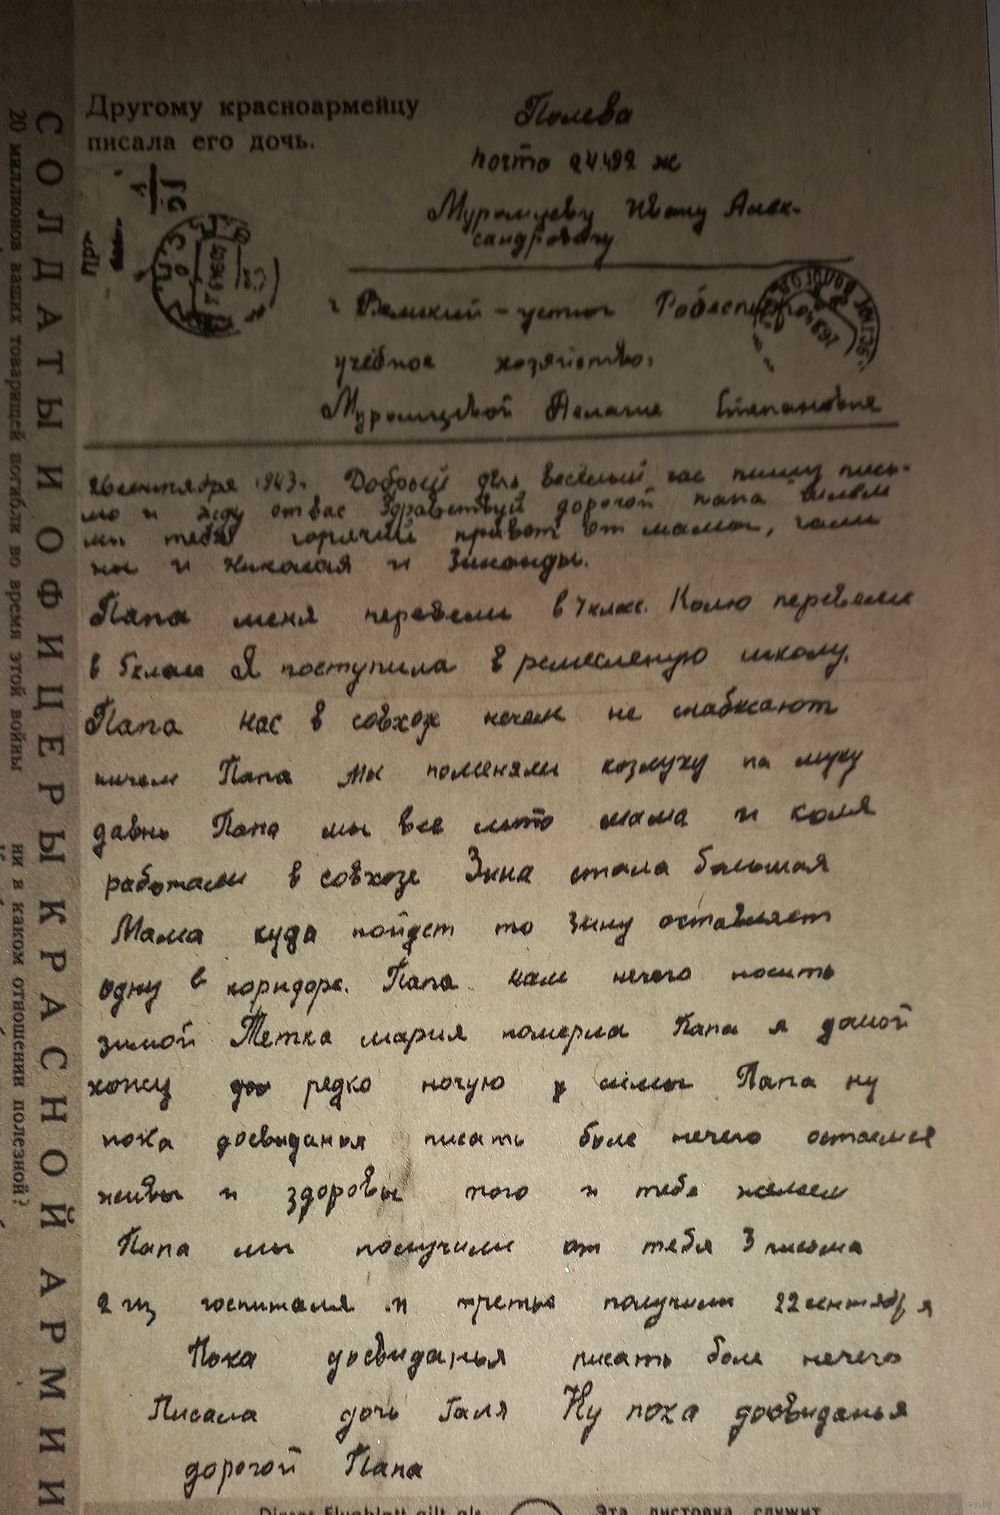 Другому красноармейцу
писала его дочь.
Полева
почто 24492 ж
Муромцеву Ивану Алек-
сандровичу
г Великий - устюг
учебное хозяйство.
Муромцевой Пелагие Степановне
26 сентября 1943 г. Добрый день веселый час пишу пись-
мо и жду от вас Здравствуй дорогой папа шлем
мы тебе горячий привет от мамы, гали
ны и Николая и Зинаиды.
Папа меня перевели в 7 клас. Колю перевели
в 5 клас Я поступила в ремесленую школу.
Папа нас в совхоз нечем не снабжают
ничем Папа мы поменяли козлуху на муку
давно Папа мы все лето мама и коля
работали в совхозе Зина стала большая
Мама куда пойдет то Зину оставляет
одну в коридоре. Папа нам нечего носить
зимой Тетка мария померла Папа я домой
хожу редко ночую у мамы Папа ну
пока досвиданья писать боле нечего остаемся
живы и здоровы того и тебе желаем
Папа мы получили от тебя 3 писма
2 из госпиталя и третье получили 22 сентября
Пока досвиданья писать боле нечего
Писала дочь Галя Ну пока досвиданья
дорогой Папа
СОЛДАТЫ И ОФИЦЕРЫ КРАСНОЙ АРМИИ
20 миллионов ваших товарищей погибли во время этой войны
ни в каком отношении полезной?
Dieses Flugblatt gilt als
Эта листовка служит